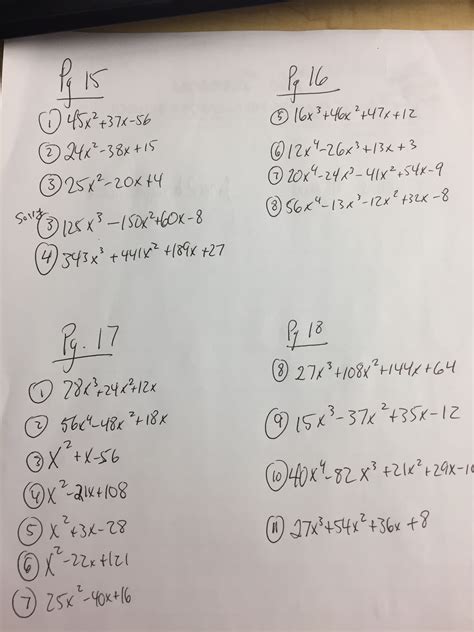 Pg 15
① 45x²+37x-56
② 24x²-38x+15
③ 25x²-20x+4
Sorry ③ 125x³-150x²+60x-8
④ 343x³+441x²+189x+27
Pg 16
⑤ 16x³+46x²+47x+12
⑥ 12x⁴-26x³+13x+3
⑦ 20x⁴-24x³-41x²+54x-9
⑧ 56x⁴-13x³-12x²+32x-8
Pg. 17
① 28x³+24x²+12x
② 56x⁴-48x²+18x
③ x²+x-56
④ x²-21x+108
⑤ x²+3x-28
⑥ x²-22x+121
⑦ 25x²-40x+16
Pg 18
⑧ 27x³+108x²+144x+64
⑨ 15x³-37x²+35x-12
⑩ 40x⁴-82x³+21x²+29x-10
⑪ 27x³+54x²+36x+8